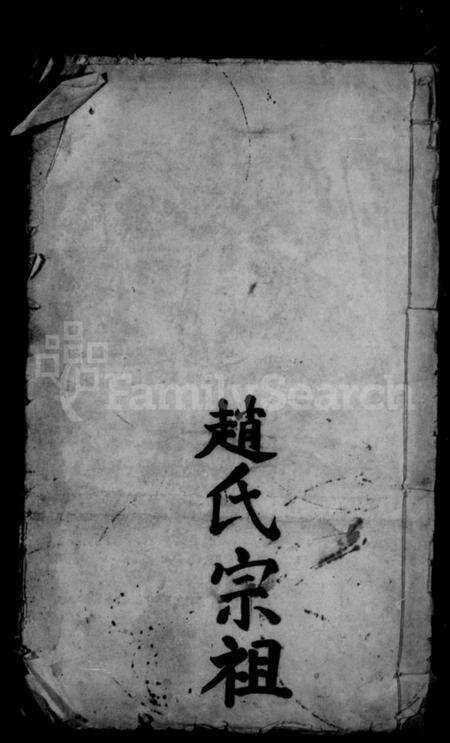 趙氏宗祖
FamilySearch